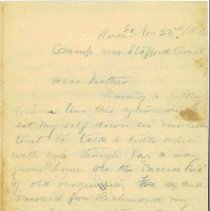 Nov 23rd 1862
Camp near Stafford Court
Dear Mother
Having a little
time this afternoon I
set my self down in our little
tent to talk a little while
with you though far a way
from home on the Sacred Soil
of old Virginia, The cry
onward for Richmond my